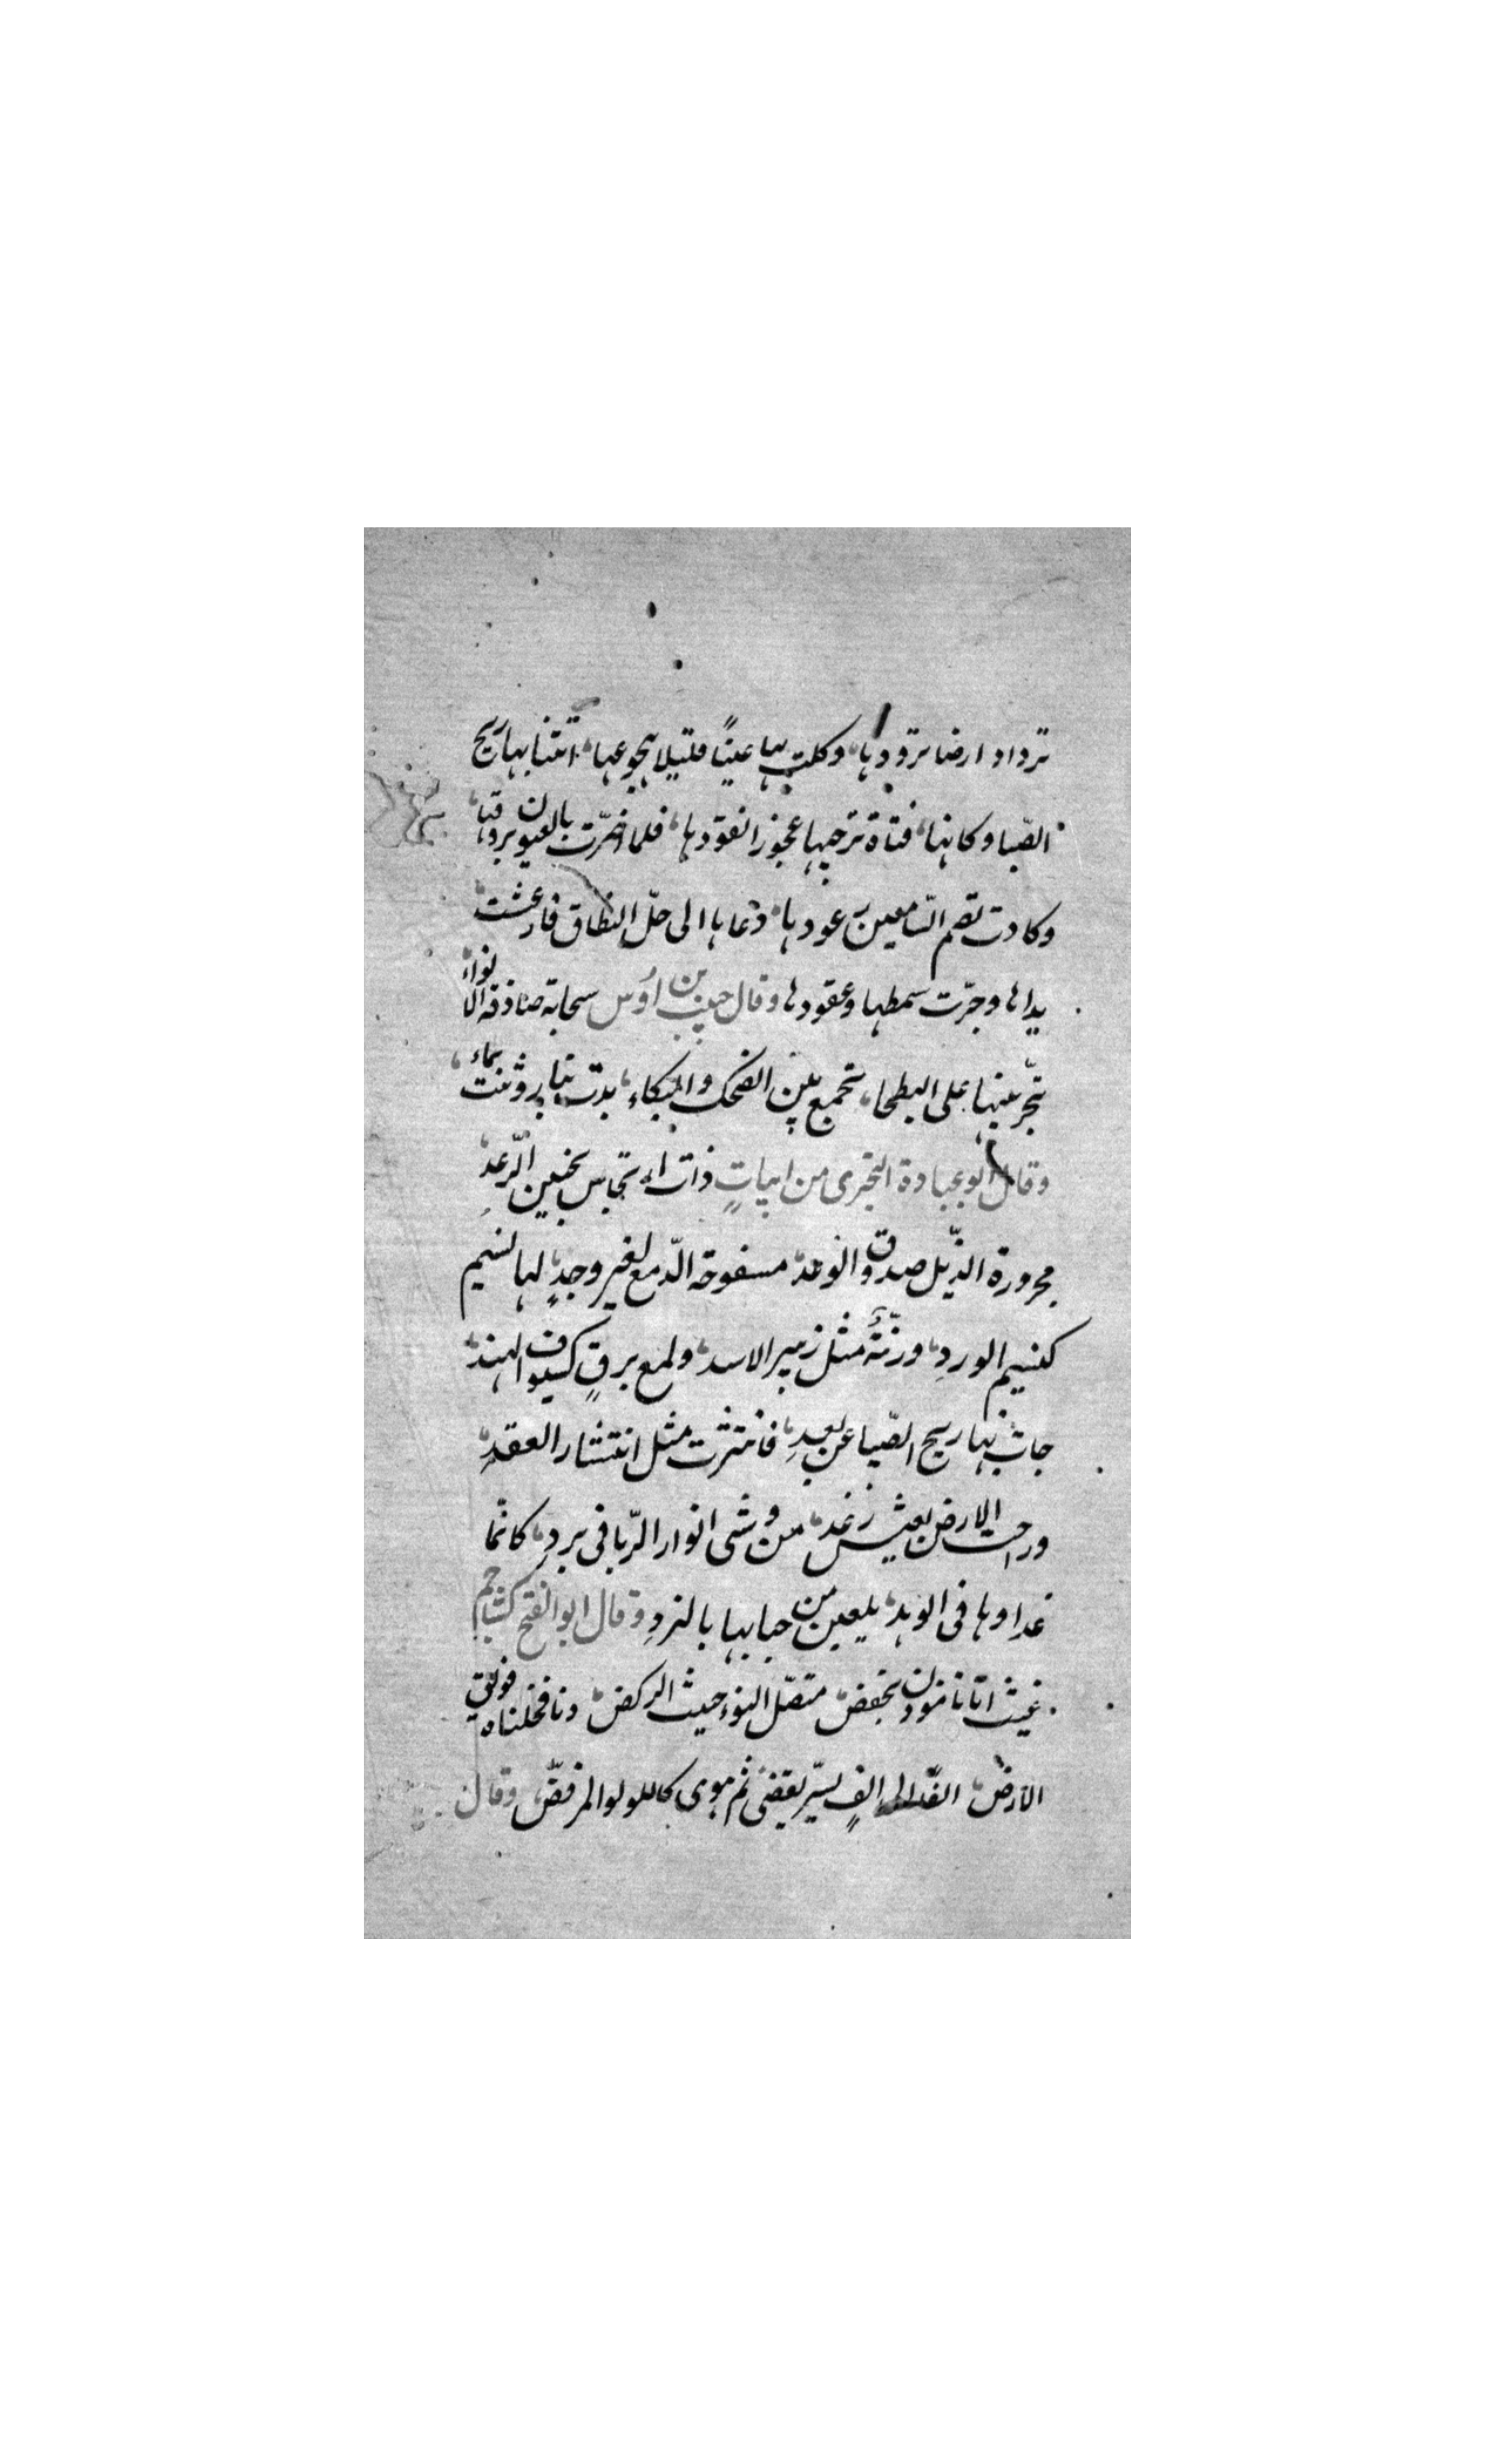 ترداد ارضا ترودها وكلت بها عينًا قليلا هجوعها اتتنا بها ريح
الصّبا وكانها فتاة ترجيها عجوز تقودها فلما اضرّت بالعيون بروقها
وكادت تصم السّامعين رعودها دعاها الى حلّ النطاق فارعشت
يداها وجرّت سمطها وعقودها وقال حبيب بن اوس سحابة صادقة الانواء
تجرّ عينها على البطحاء تجمع بين الضحك والبكاء بدت بنار وثنت بماء
وقال ابو عبادة البحترى من ابياتٍ ذات ارتجاس بحنين الرّعد
مجرورة الذّيل صدوق الوعد مسفوحة الدّمع لغير وجدٍ لها نسيم
كنسيم الوردِ ورنّةٌ مثل زئير الاسد ولمع برقٍ كسيوف الهند
جاءت بها ريح الصّبا عن بعدِ فانتثرت مثل انتثار العقدِ
وراحت الارض بعيش رغد من وشى انوار الرّبا فى بردِ كانّما
غدرانها فى الوهد يلعبن من حبابها بالنردِ وقال ابو الفتح كشاجم
غيث اتانا مؤذن بخفض متصّل النوء حيث الركض دنا فخلناه فويق
الارض الفا الى الفٍ بسرّ يقضى ثم هوى كاللولو المرفضّ وقال